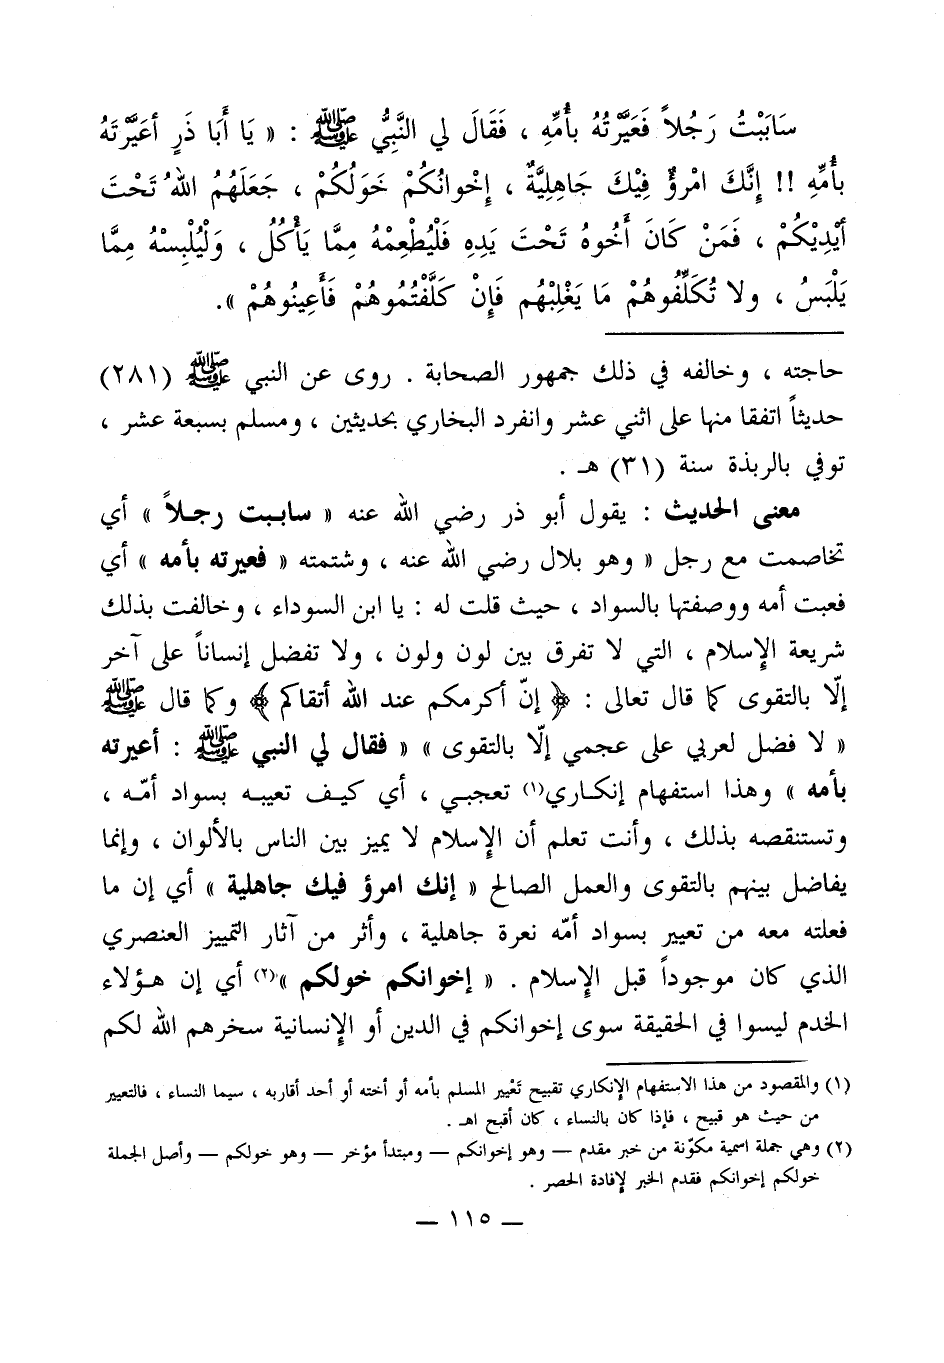 سَابَبْتُ رَجُلاً فَعَيَّرْتُهُ بِأُمِّهِ ، فَقَالَ لي النَّبِيُّ ﷺ : « يَا أَبَا ذَرٍ أعَيَّرْتَهُ
بِأُمِّهِ !! إِنَّكَ امْرؤٌ فِيْكَ جَاهِلِيَّةٌ ، إِخْوانُكُمْ خَوَلُكُمْ ، جَعَلَهُمُ اللهُ تَحْتَ
أيْدِيْكُمْ ، فَمَنْ كَانَ أَخُوهُ تَحْتَ يَدِهِ فَلْيُطْعِمْهُ مِمَّا يَأْكُلُ ، وَلْيُلْبِسْهُ مِمَّا
يَلْبَسُ ، ولا تُكَلِّفُوهُمْ مَا يَغْلِبُهُم فَإِنْ كَلَّفْتُمُوهُمْ فَأَعِينُوهُمْ ».
حاجته ، وخالفه في ذلك جمهور الصحابة . روى عن النبي ﷺ (٢٨١)
حديثاً اتفقا منها على اثني عشر وانفرد البخاري بحديثين ، ومسلم بسبعة عشر ،
توفي بالربذة سنة (٣١) هـ .
معنى الحديث : يقول أبو ذر رضي الله عنه « ساببت رجلاً » أي
تخاصمت مع رجل « وهو بلال رضي الله عنه ، وشتمته « فعيرته بأمه » أي
فعبت أمه ووصفتها بالسواد ، حيث قلت له : يا ابن السوداء ، وخالفت بذلك
شريعة الإسلام ، التي لا تفرق بين لون ولون ، ولا تفضل إنساناً على آخر
إلّا بالتقوى كما قال تعالى : ﴿ إنّ أكرمكم عند الله أتقاكم ﴾ وكما قال ﷺ
« لا فضل لعربي على عجمي إلّا بالتقوى » « فقال لي النبي ﷺ : أعيرته
بأمه » وهذا استفهام إنكاري(١) تعجبي ، أي كيف تعيبه بسواد أمّه ،
وتستنقصه بذلك ، وأنت تعلم أن الإسلام لا يميز بين الناس بالألوان ، وإنما
يفاضل بينهم بالتقوى والعمل الصالح « إنك امرؤ فيك جاهلية » أي إن ما
فعلته معه من تعيير بسواد أمّه نعرة جاهلية ، وأثر من آثار التمييز العنصري
الذي كان موجوداً قبل الإسلام . « إخوانكم خولكم »(٢) أي إن هؤلاء
الخدم ليسوا في الحقيقة سوى إخوانكم في الدين أو الإنسانية سخرهم الله لكم
(١) والمقصود من هذا الاستفهام الإنكاري تقبيح تَعْيير المسلم بأمه أو أخته أو أحد أقاربه ، سيما النساء ، فالتعيير
من حيث هو قبيح ، فإذا كان بالنساء ، كان أقبح اهـ .
(٢) وهي جملة اسمية مكوّنة من خبر مقدم — وهو إخوانكم — ومبتدأ مؤخر — وهو خولكم — وأصل الجملة
خولكم إخوانكم فقدم الخبر لإفادة الحصر .
— ١١٥ —